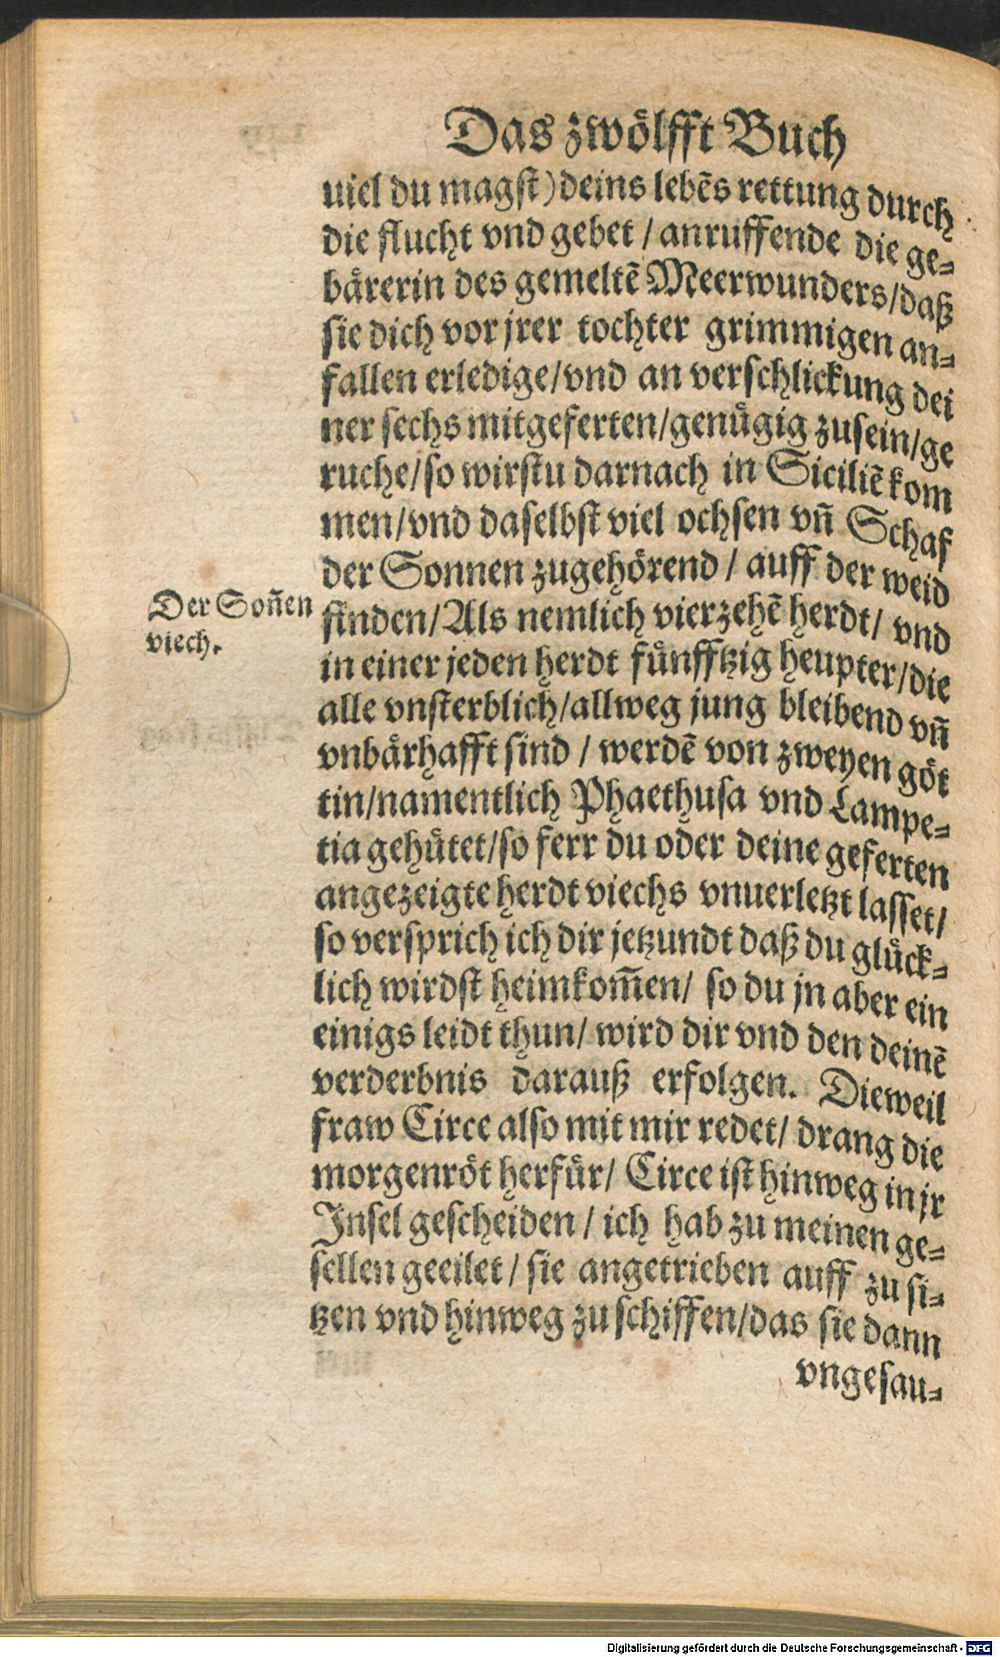 Das zwölfft Buch
uiel du magst) deins lebēs rettung durch
die flucht vnd gebet / anruffende die ge-
bårerin des gemeltē Meerwunders/daß
sie dich vor jrer tochter grimmigen an-
fallen erledige/vnd an verschlickung dei
ner sechs mitgeferten/genůgig zusein/ge
ruche/so wirstu darnach in Siciliē kom
men/vnd daselbst viel ochsen vñ Schaf
der Sonnen zugehörend / auff der weid
Der Soñen
viech.
finden/Als nemlich vierzehē herdt/ vnd
in einer jeden herdt fünfftzig heupter/die
alle vnsterblich/allweg jung bleibend vñ
vnbårhafft sind / werdē von zweyen göt
tin/namentlich Phaethusa vnd Lampe-
tia gehütet/so ferr du oder deine geferten
angezeigte herdt viechs vnuerletzt lasset/
so versprich ich dir jetzundt daß du glück-
lich wirdst heimkom̃en/ so du jn aber ein
einigs leidt thun/ wird dir vnd den deinē
verderbnis darauß erfolgen. Dieweil
fraw Circe also mit mir redet/ drang die
morgenröt herfür/ Circe ist hinweg in jr
Insel gescheiden / ich hab zu meinen ge-
sellen geeilet / sie angetrieben auff zu si-
tzen vnd hinweg zu schiffen/das sie dann
vngesau-
Digitalisierung gefördert durch die Deutsche Forschungsgemeinschaft - DFG